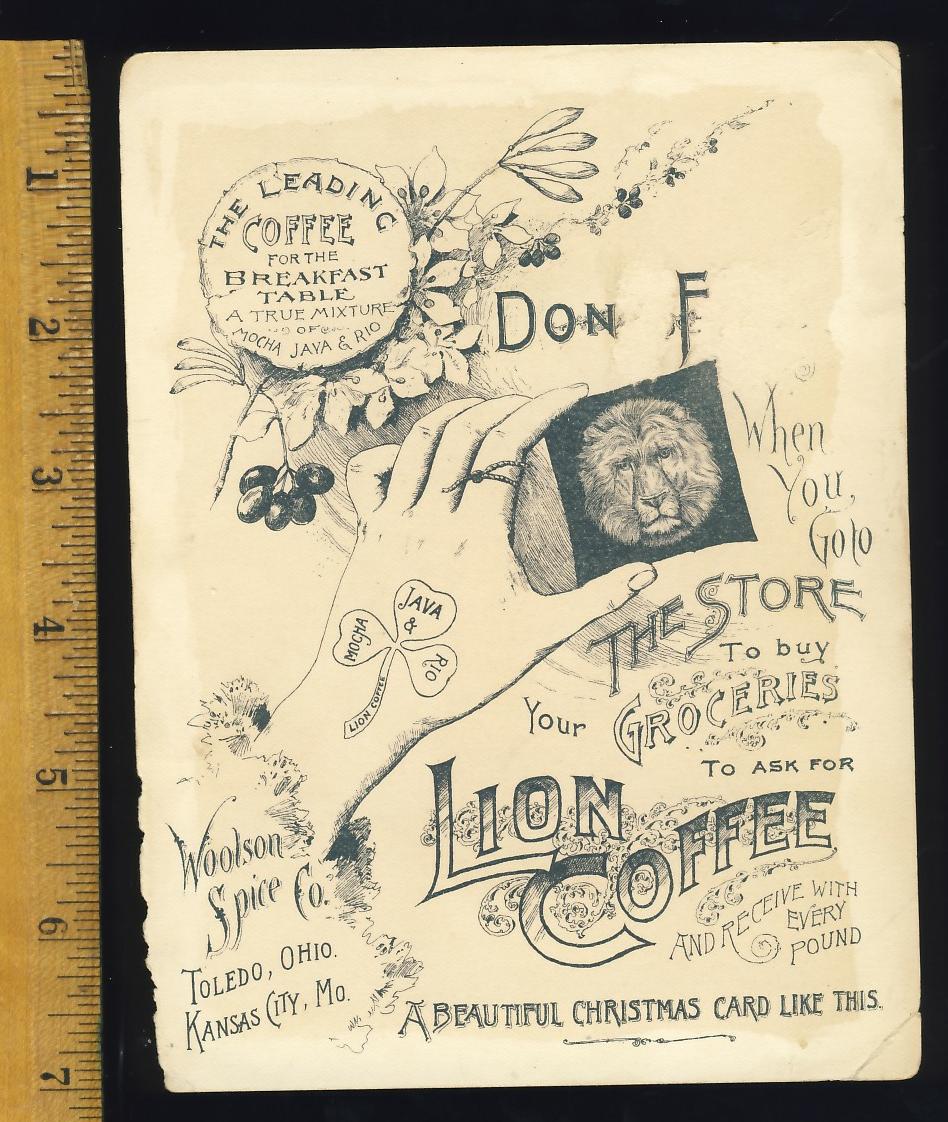 THE LEADING
COFFEE
FOR THE
BREAKFAST
TABLE
A TRUE MIXTURE
OF
MOCHA JAVA & RIO
DON F
When
You,
Go to
THE STORE
To buy
Your GROCERIES
TO ASK FOR
LION
COFFEE
AND RECEIVE WITH
EVERY
POUND
A BEAUTIFUL CHRISTMAS CARD LIKE THIS.
MOCHA
JAVA
&
RIO
LION COFFEE
Woolson
Spice Co.
TOLEDO, OHIO.
KANSAS CITY, MO.
1
2
3
4
5
6
7